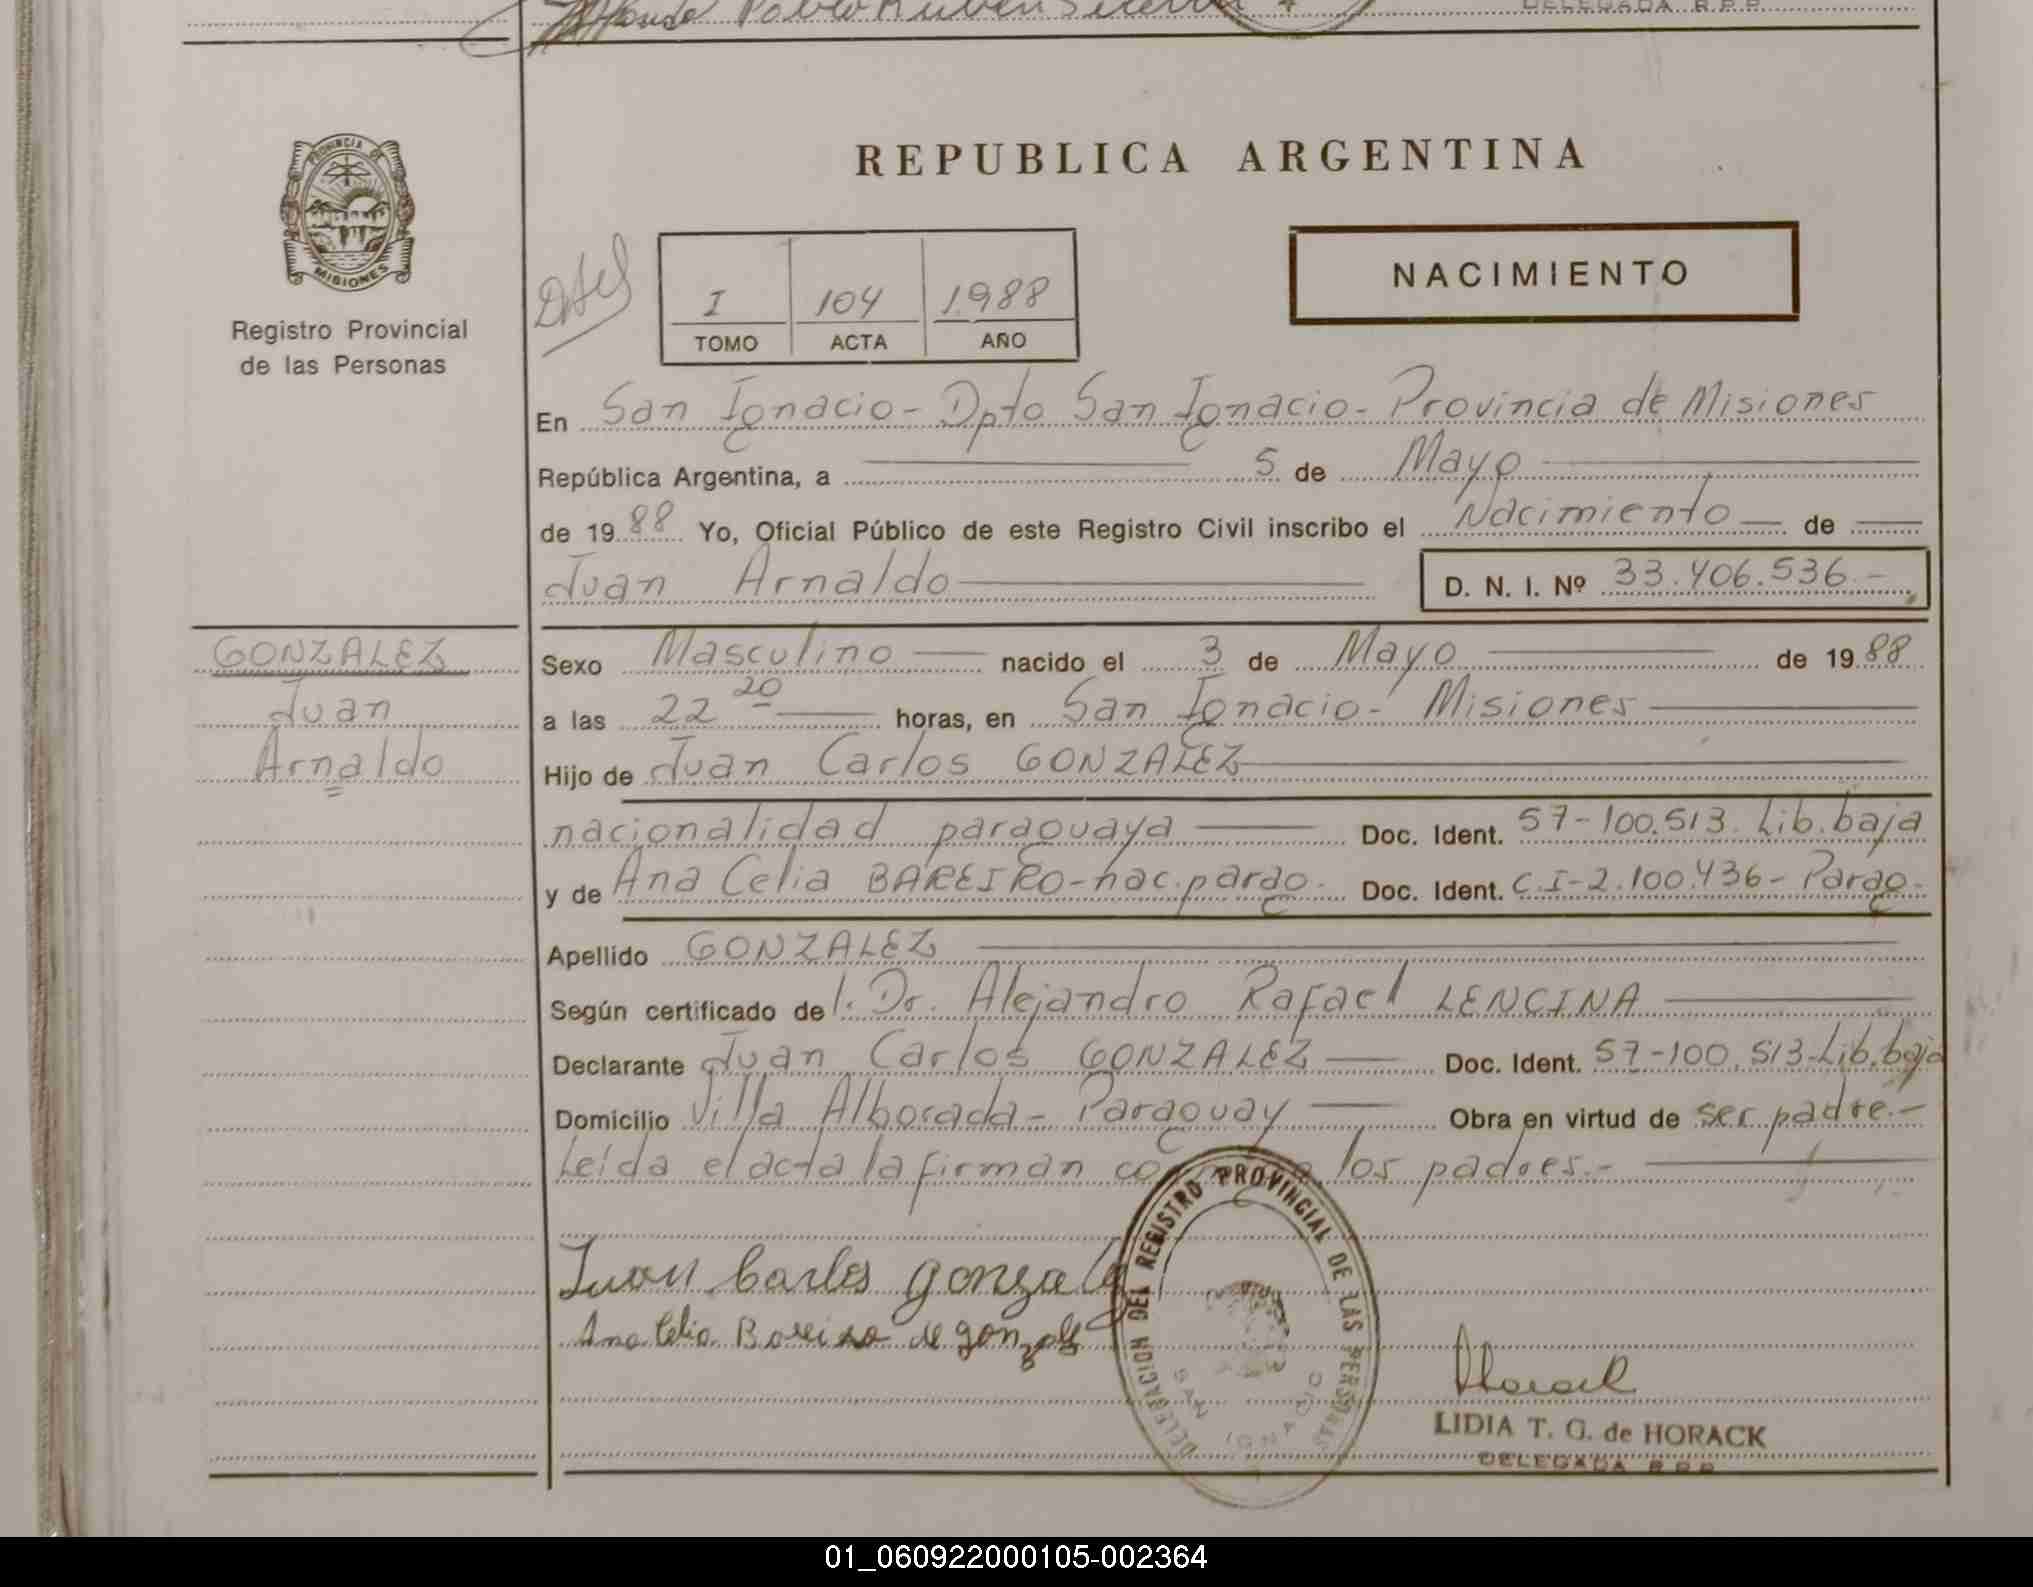 Pablo Ruben
DELEGADA R.P.P.
PROVINCIA DE
MISIONES
Registro Provincial
de las Personas
REPUBLICA ARGENTINA
I 104 1988
TOMO ACTA AÑO
NACIMIENTO
En San Ignacio - Dpto San Ignacio - Provincia de Misiones
República Argentina, a 5 de Mayo
de 1988 Yo, Oficial Público de este Registro Civil inscribo el Nacimiento de
Juan Arnaldo D. N. I. Nº 33.406.536.-
GONZALEZ
Juan
Arnaldo
Sexo Masculino nacido el 3 de Mayo de 1988
a las 22 20 horas, en San Ignacio - Misiones
Hijo de Juan Carlos GONZALEZ
nacionalidad paraguaya Doc. Ident. 57-100.513. Lib. baja
y de Ana Celia BAREIRO - nac. parag. Doc. Ident. C.I-2.100.436 - Parag.
Apellido GONZALEZ
Según certificado del. Dr. Alejandro Rafael LENCINA
Declarante Juan Carlos GONZALEZ Doc. Ident. 57-100.513-Lib. baja
Domicilio Villa Alborada - Paraguay Obra en virtud de ser padre.-
Leída el acta la firman los padres.-
Juan Carlos gonzalez
Ana Celia Bareiro de gonzalez
DELEGACION DEL REGISTRO PROVINCIAL DE LAS PERSONAS
SAN IGNACIO
Horack
LIDIA T. G. de HORACK
DELEGADA R.P.P.
01_060922000105-002364